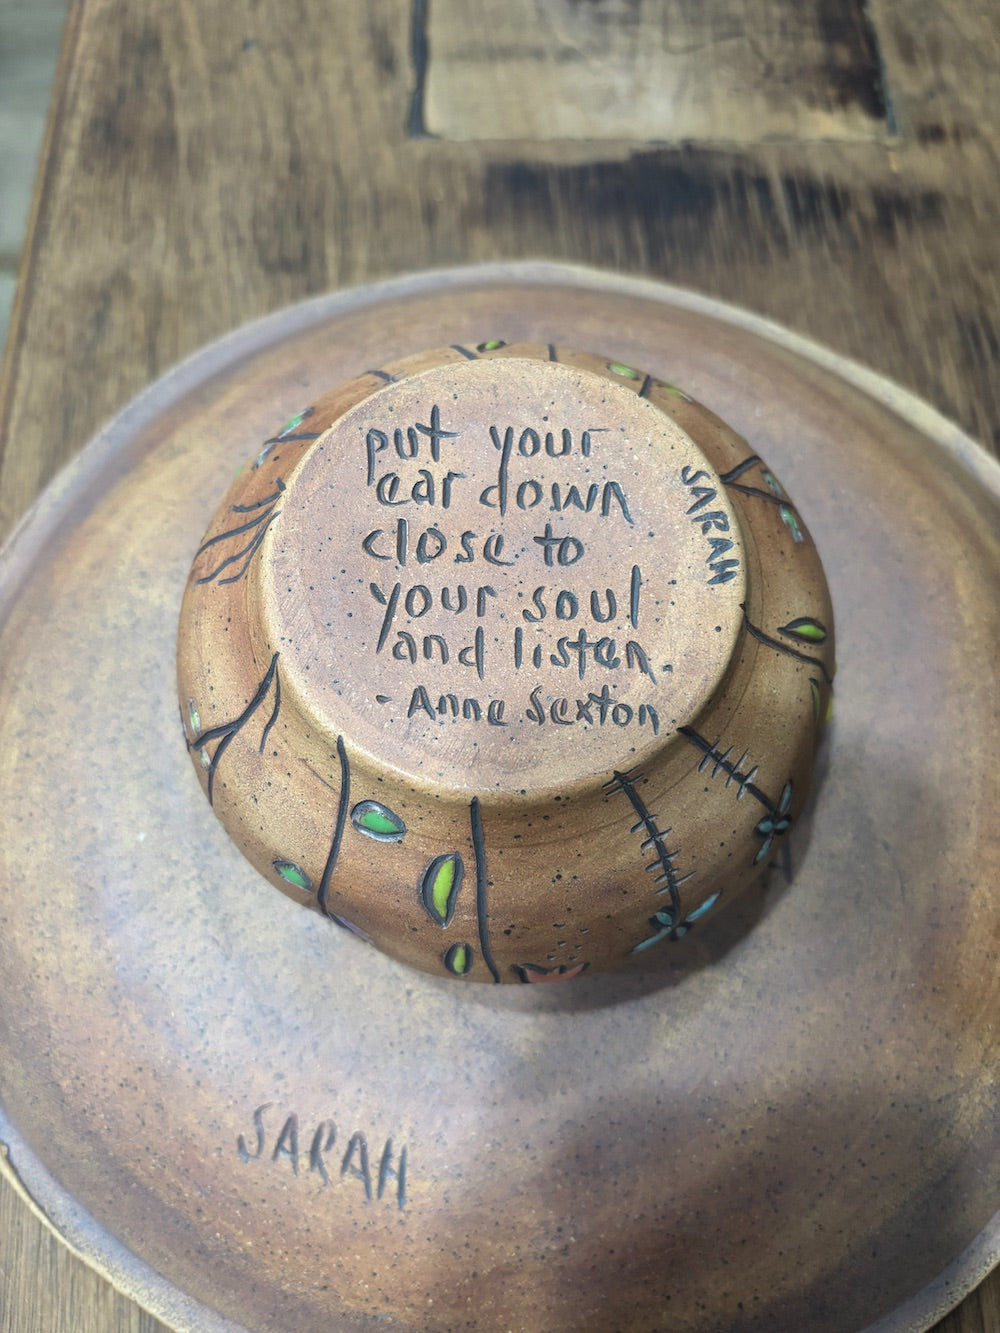 put your
ear down
close to
your soul
and listen.
- Anne Sexton
SARAH
SARAH